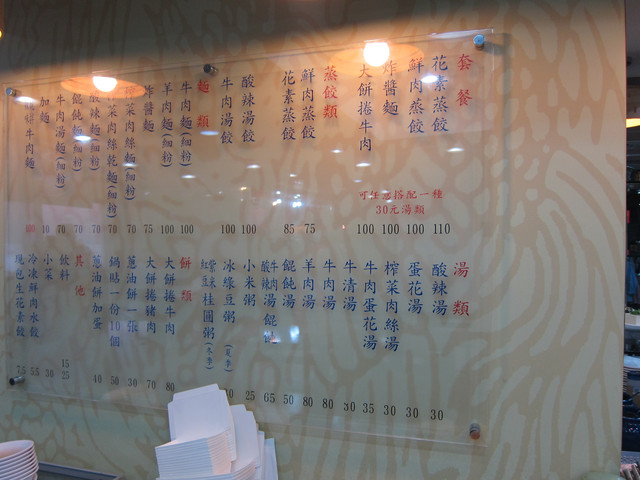 套餐
花素蒸餃 110
鮮肉蒸餃 100
炸醬麵 100
大餅捲牛肉 100
可任意搭配一種
30元湯類
蒸餃類
鮮肉蒸餃 75
花素蒸餃 85
酸辣湯餃 100
牛肉湯餃 100
麵類
牛肉麵(細粉) 100
羊肉麵(細粉) 100
炸醬麵 75
菜肉絲麵(細粉) 70
菜肉絲乾麵(細粉) 70
酸辣麵(細粉) 70
餛飩麵(細粉) 70
牛肉湯麵(細粉) 70
加麵 10
牛肉麵 100
湯類
酸辣湯 30
蛋花湯 30
榨菜肉絲湯 30
牛肉蛋花湯 35
牛清湯 30
牛肉湯 80
羊肉湯 80
餛飩湯 50
酸辣牛肉湯餛飩 65
小米粥 25
冰綠豆粥(夏季)
紫米紅豆桂圓粥(冬季)
餅類
大餅捲牛肉 80
大餅捲豬肉 70
蔥油餅一張 30
鍋貼一份10個 50
蔥油餅加蛋 40
其他
飲料 15 25
小菜 30
冷凍鮮肉水餃 5.5
現包生花素餃 7.5